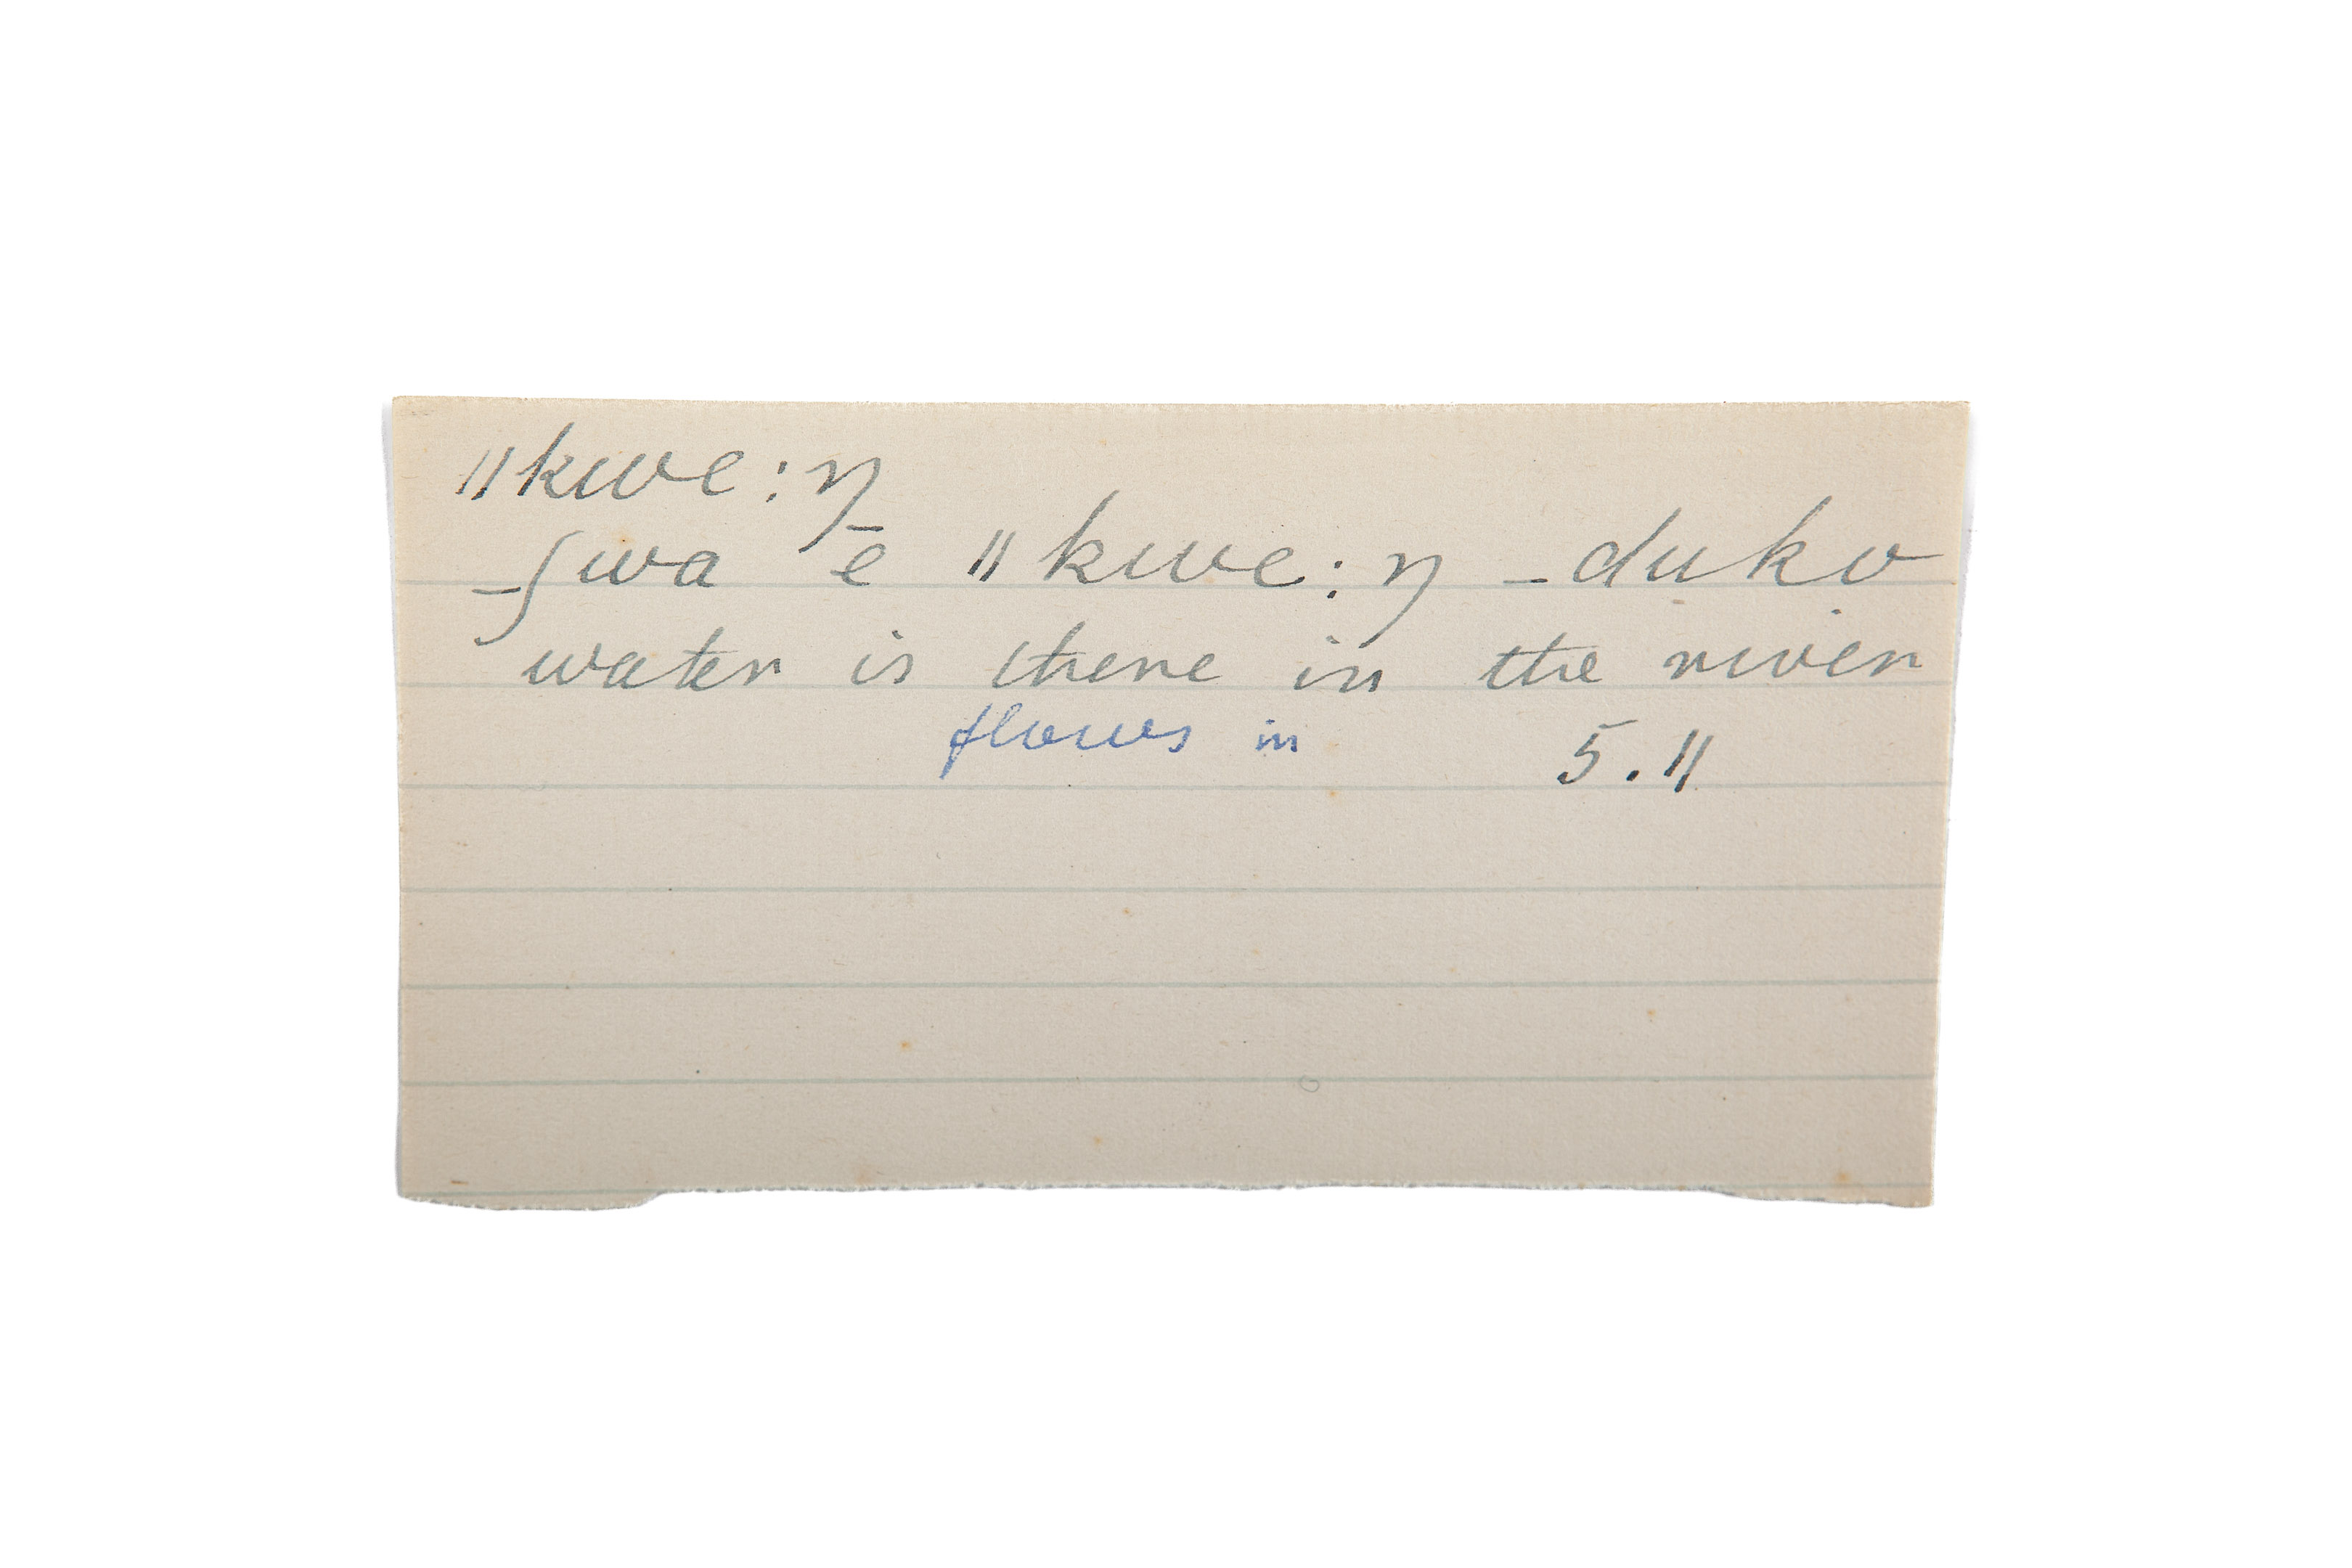 ǁkwe:ŋ
_ʃwa ē ǁkwe:ŋ _duko
water is there in the river
flows in 5.ǁ